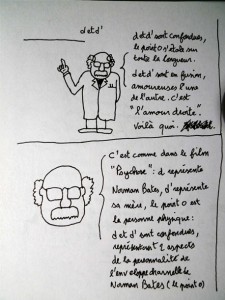 d et d'
d et d' sont confondues,
le point O s'étale sur
toute la longueur.
d et d' sont en fusion,
amoureuses l'une
de l'autre. c'est
"l'amour droite".
Voilà quoi.
C'est comme dans le film
"Psychose": d représente
Norman Bates, d' représente
sa mère, le point O est
la personne physique:
d et d' sont confondues,
représentant 2 aspects
de la personnalité de
l'enveloppe charnelle de
Norman Bates (le point O)